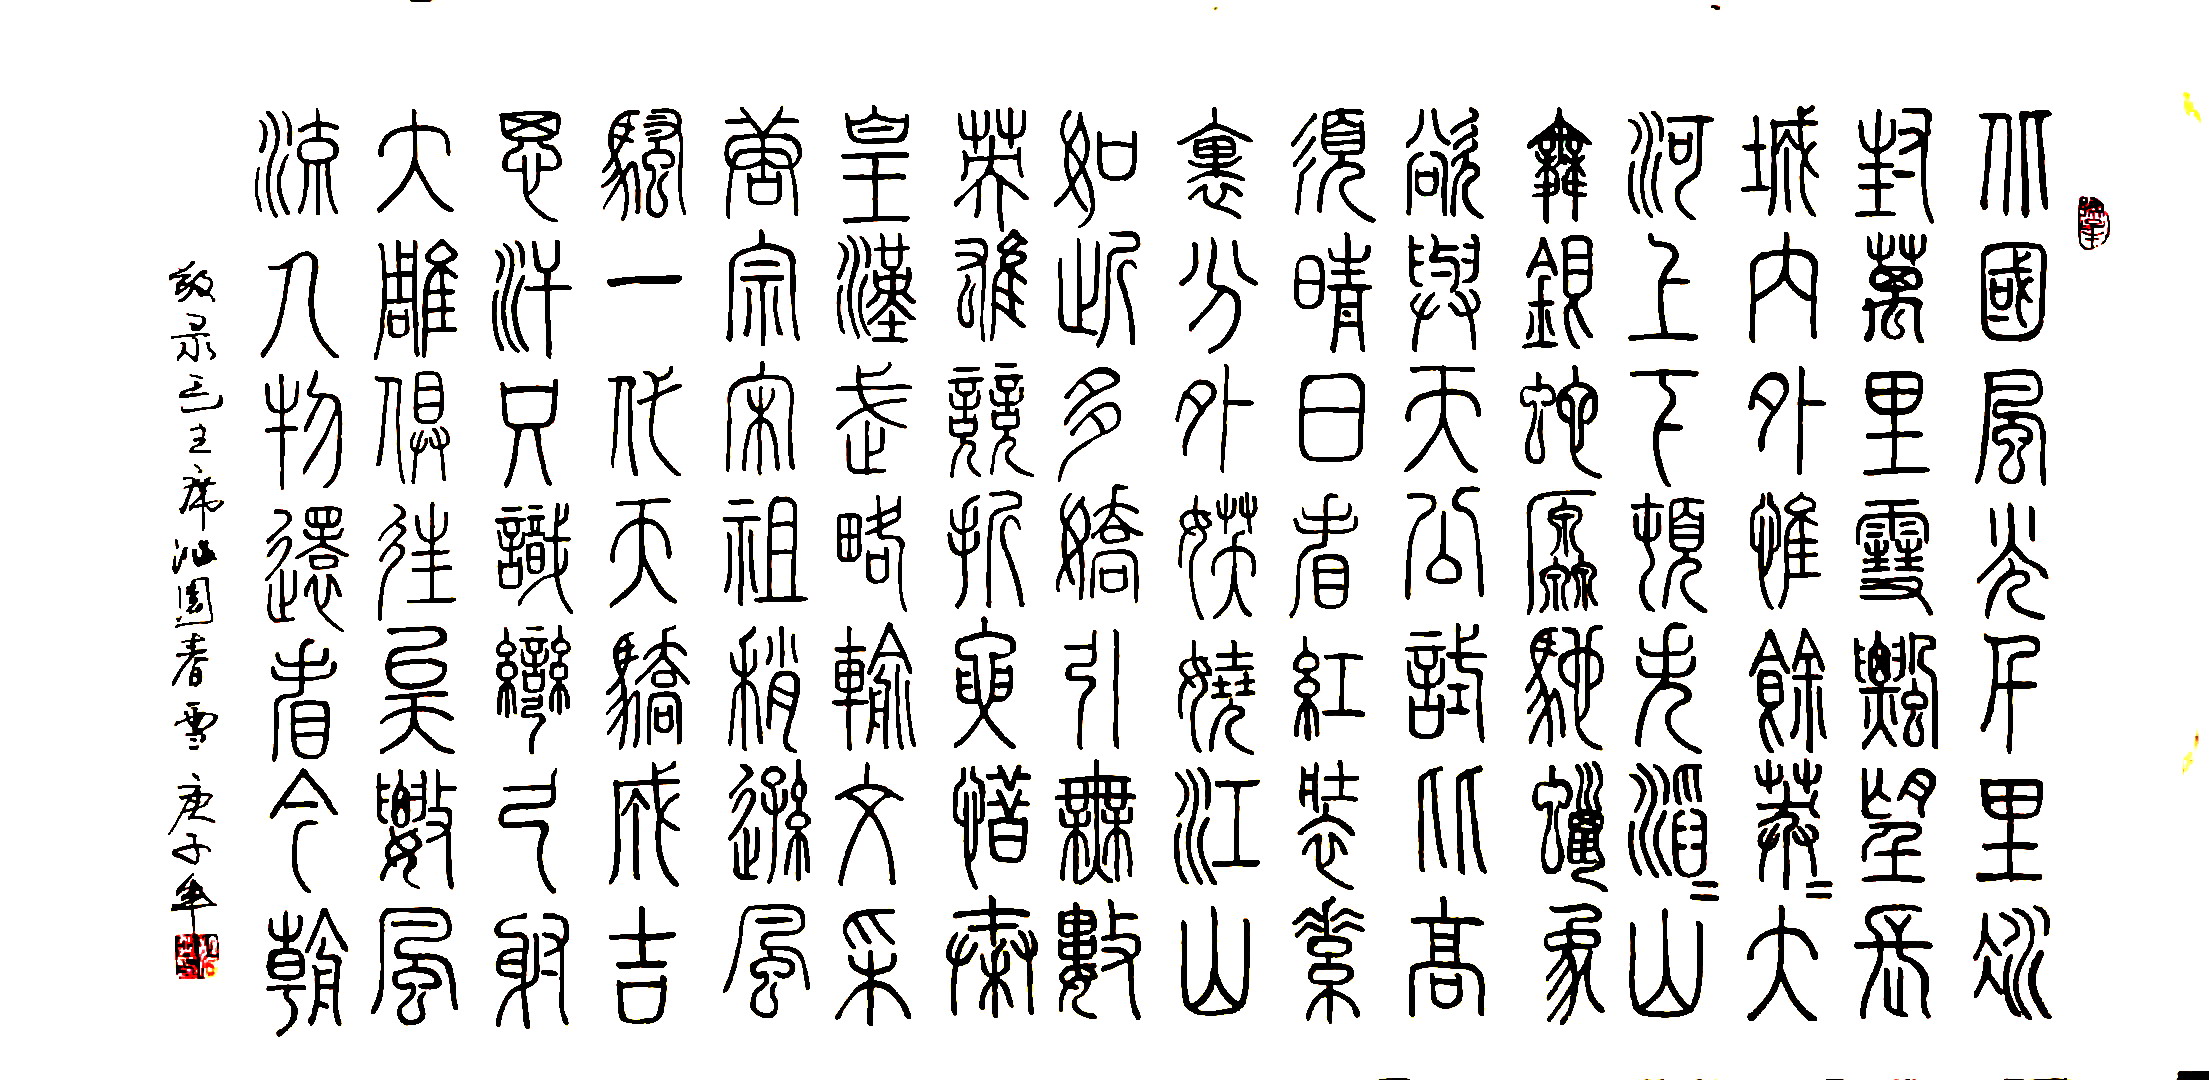 北國風光千里冰
封萬里雪飄望長
城內外惟餘莽〻大
河上下頓失滔〻山
舞銀蛇原馳蠟象
欲與天公試比高
須晴日看紅裝素
裹分外妖嬈江山
如此多嬌引無數
英雄競折腰惜秦
皇漢武略輸文采
唐宗宋祖稍遜風
騷一代天驕成吉
思汗只識彎弓射
大雕俱往矣數風
流人物還看今朝
敬录毛主席沁園春雪 庚子年